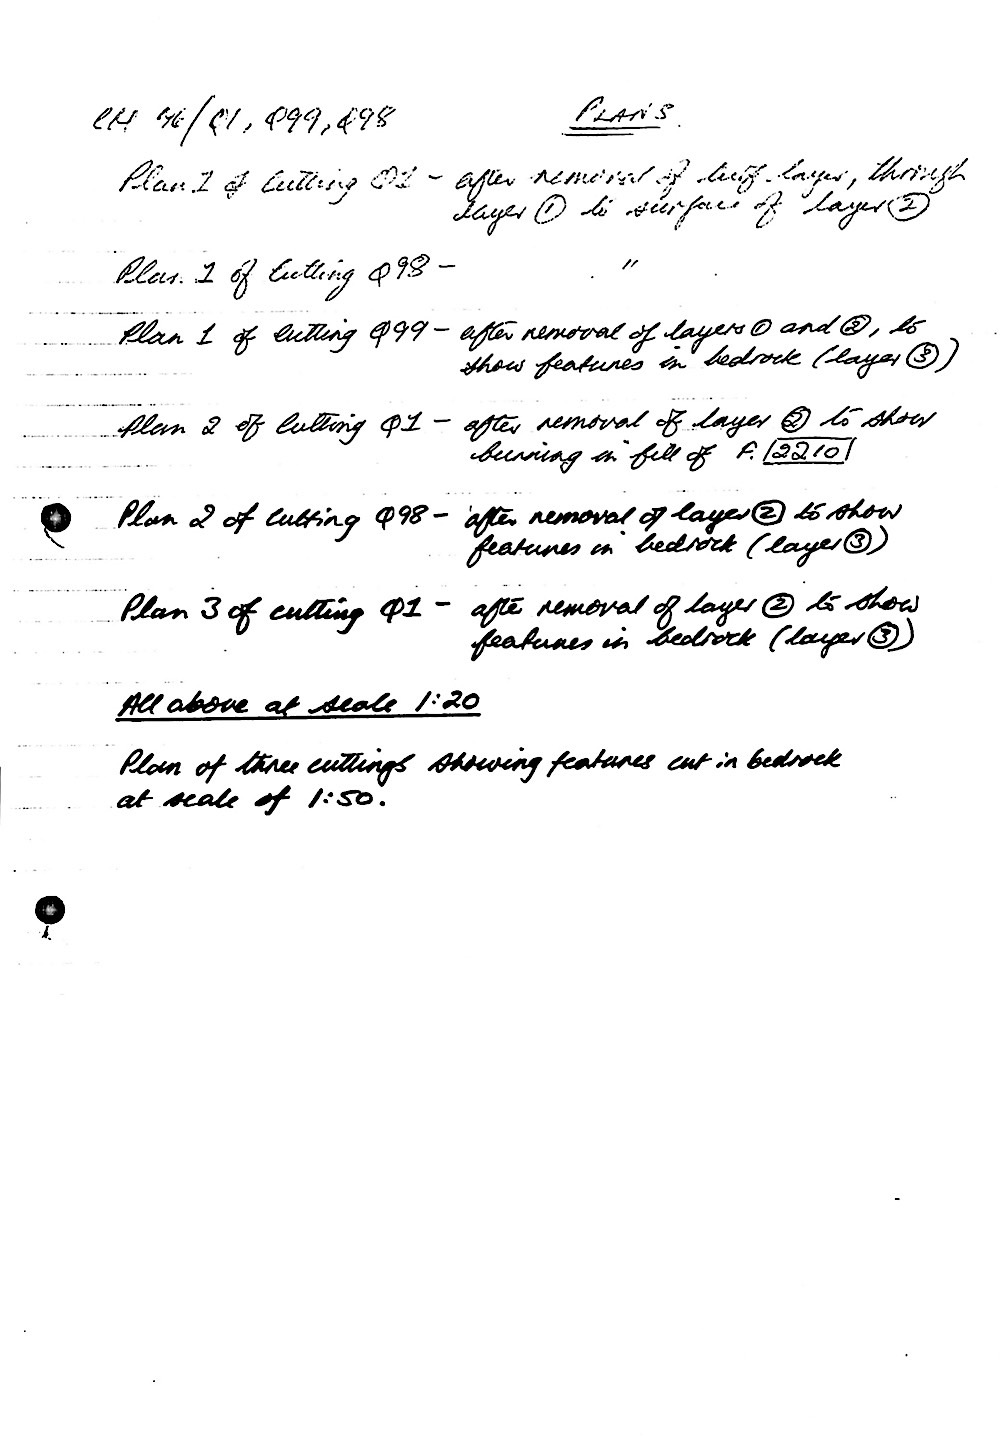 CH 76/Q1, Q99, Q98
PLANS
Plan 1 of Cutting Q1 - after removal of turf layer, through
layer ① to surface of layer ②
Plan 1 of Cutting Q98 - "
Plan 1 of Cutting Q99 - after removal of layers ① and ②, to
show features in bedrock (layer ③)
Plan 2 of Cutting Q1 - after removal of layer ② to show
burning in fill of F. 2210
Plan 2 of Cutting Q98 - after removal of layer ② to show
features in bedrock (layer ③)
Plan 3 of cutting Q1 - after removal of layer ② to show
features in bedrock (layer ③)
All above at scale 1:20
Plan of three cuttings showing features cut in bedrock
at scale of 1:50.